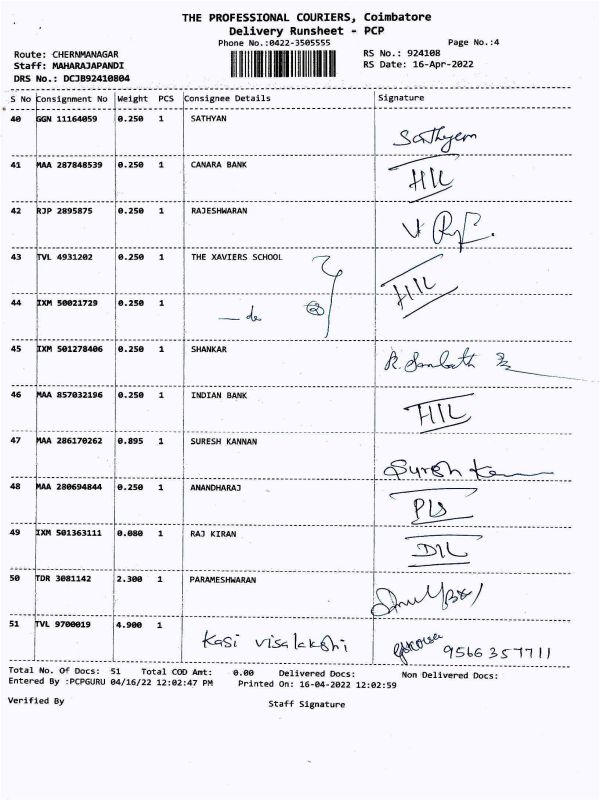 THE PROFESSIONAL COURIERS, Coimbatore
Delivery Runsheet - PCP
Phone No.:0422-3505555 Page No.:4
Route: CHERNMANAGAR RS No.: 924108
Staff: MAHARAJAPANDI RS Date: 16-Apr-2022
DRS No.: DCJB92410804
S No Consignment No Weight PCS Consignee Details Signature
40 GGN 11164059 0.250 1 SATHYAN Sathyan
41 MAA 287848539 0.250 1 CANARA BANK HIL
42 RJP 2895875 0.250 1 RAJESHWARAN
43 TVL 4931202 0.250 1 THE XAVIERS SCHOOL HIL
44 IXM 50021729 0.250 1 — do
45 IXM 501278406 0.250 1 SHANKAR R. Sambath
46 MAA 857032196 0.250 1 INDIAN BANK HIL
47 MAA 286170262 0.895 1 SURESH KANNAN Suresh
48 MAA 280694844 0.250 1 ANANDHARAJ
49 IXM 501363111 0.080 1 RAJ KIRAN DIL
50 TDR 3081142 2.300 1 PARAMESHWARAN
51 TVL 9700019 4.900 1 Kasi visalakshi 9566357711
Total No. Of Docs: 51 Total COD Amt: 0.00 Delivered Docs: Non Delivered Docs:
Entered By :PCPGURU 04/16/22 12:02:47 PM Printed On: 16-04-2022 12:02:59
Verified By Staff Signature